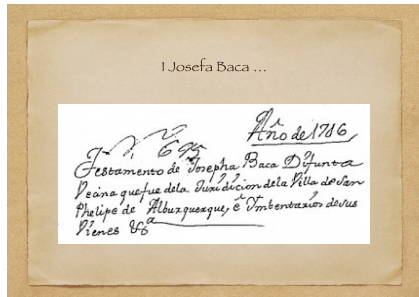 I Josefa Baca ...
Año de 1716
N. 695
Testamento de Josepha Baca Difunta
Vecina que fue de la Juridicion de la Villa de San
Phelipe de Alburquerque, é Imbentarios de sus
Vienes &a